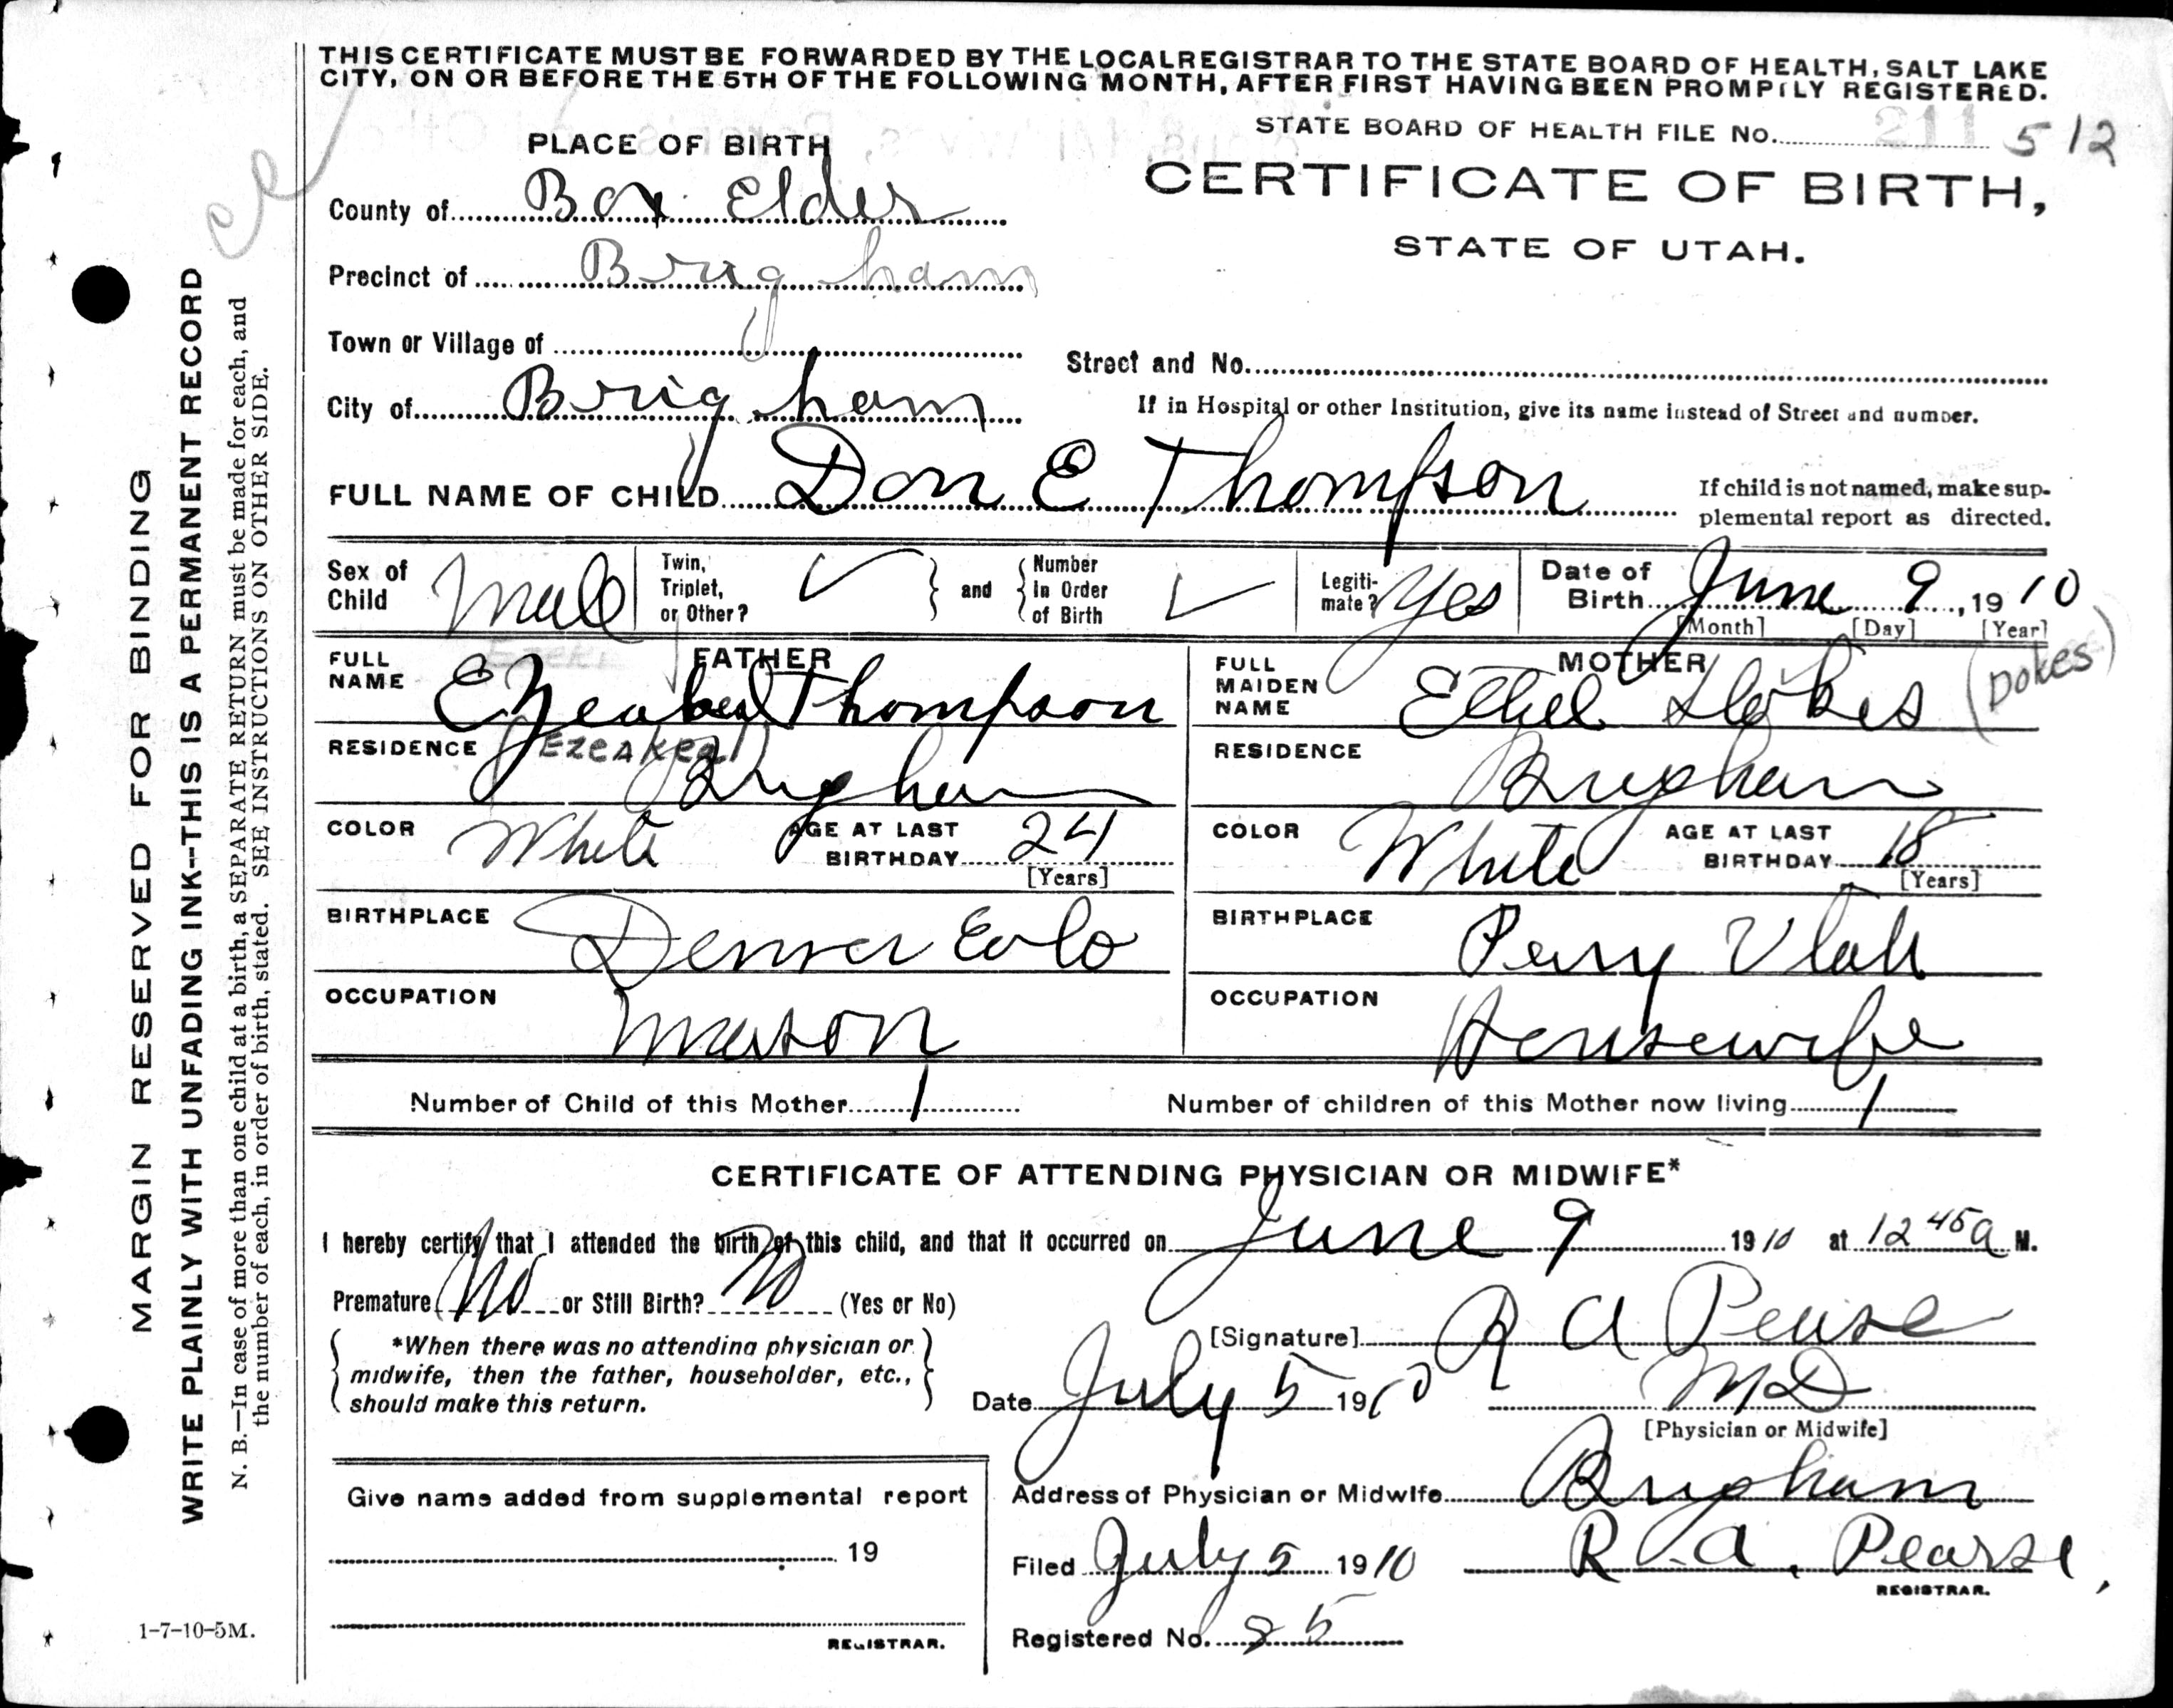 THIS CERTIFICATE MUST BE FORWARDED BY THE LOCAL REGISTRAR TO THE STATE BOARD OF HEALTH, SALT LAKE
CITY, ON OR BEFORE THE 5TH OF THE FOLLOWING MONTH, AFTER FIRST HAVING BEEN PROMPTLY REGISTERED.
STATE BOARD OF HEALTH FILE No. 211 512
CERTIFICATE OF BIRTH,
STATE OF UTAH.
PLACE OF BIRTH
County of Box Elder
Precinct of Brigham
Town or Village of
Street and No.
City of Brigham
If in Hospital or other Institution, give its name instead of Street and number.
FULL NAME OF CHILD Don E Thompson
If child is not named, make sup-
plemental report as directed.
Sex of Child Male
Twin, Triplet, or Other? ✓ and Number In Order of Birth ✓
Legiti-mate? Yes
Date of Birth June 9, 1910
[Month] [Day] [Year]
FATHER
FULL NAME Thompson
(Ezeakeal)
RESIDENCE Brigham
COLOR White
AGE AT LAST BIRTHDAY 24
[Years]
BIRTHPLACE Denver Colo
OCCUPATION Mason
MOTHER
FULL MAIDEN NAME Ethel Stokes (Dokes)
RESIDENCE Brigham
COLOR White
AGE AT LAST BIRTHDAY 18
[Years]
BIRTHPLACE Perry Utah
OCCUPATION Housewife
Number of Child of this Mother 1
Number of children of this Mother now living 1
CERTIFICATE OF ATTENDING PHYSICIAN OR MIDWIFE*
I hereby certify that I attended the birth of this child, and that it occurred on June 9 1910 at 12 45 a M.
Premature No or Still Birth? No (Yes or No)
*When there was no attending physician or
midwife, then the father, householder, etc.,
should make this return.
[Signature] R A Pearse
Date July 5 1910 MD
[Physician or Midwife]
Address of Physician or Midwife Brigham
Filed July 5 1910 R. A. Pearse,
REGISTRAR.
Registered No. 85
Give name added from supplemental report
19
REGISTRAR.
MARGIN RESERVED FOR BINDING
WRITE PLAINLY WITH UNFADING INK--THIS IS A PERMANENT RECORD
N. B.—In case of more than one child at a birth, a SEPARATE RETURN must be made for each, and
the number of each, in order of birth, stated. SEE INSTRUCTIONS ON OTHER SIDE.
1-7-10-5M.